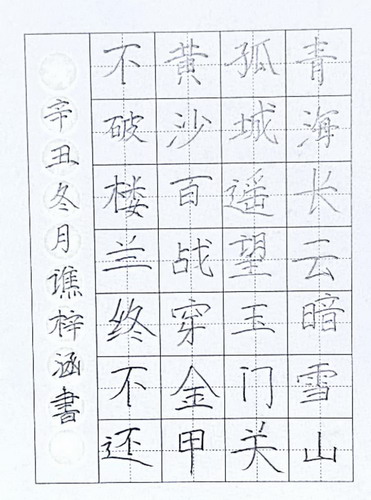 青海长云暗雪山
孤城遥望玉门关
黄沙百战穿金甲
不破楼兰终不还
辛丑冬月谯梓涵書